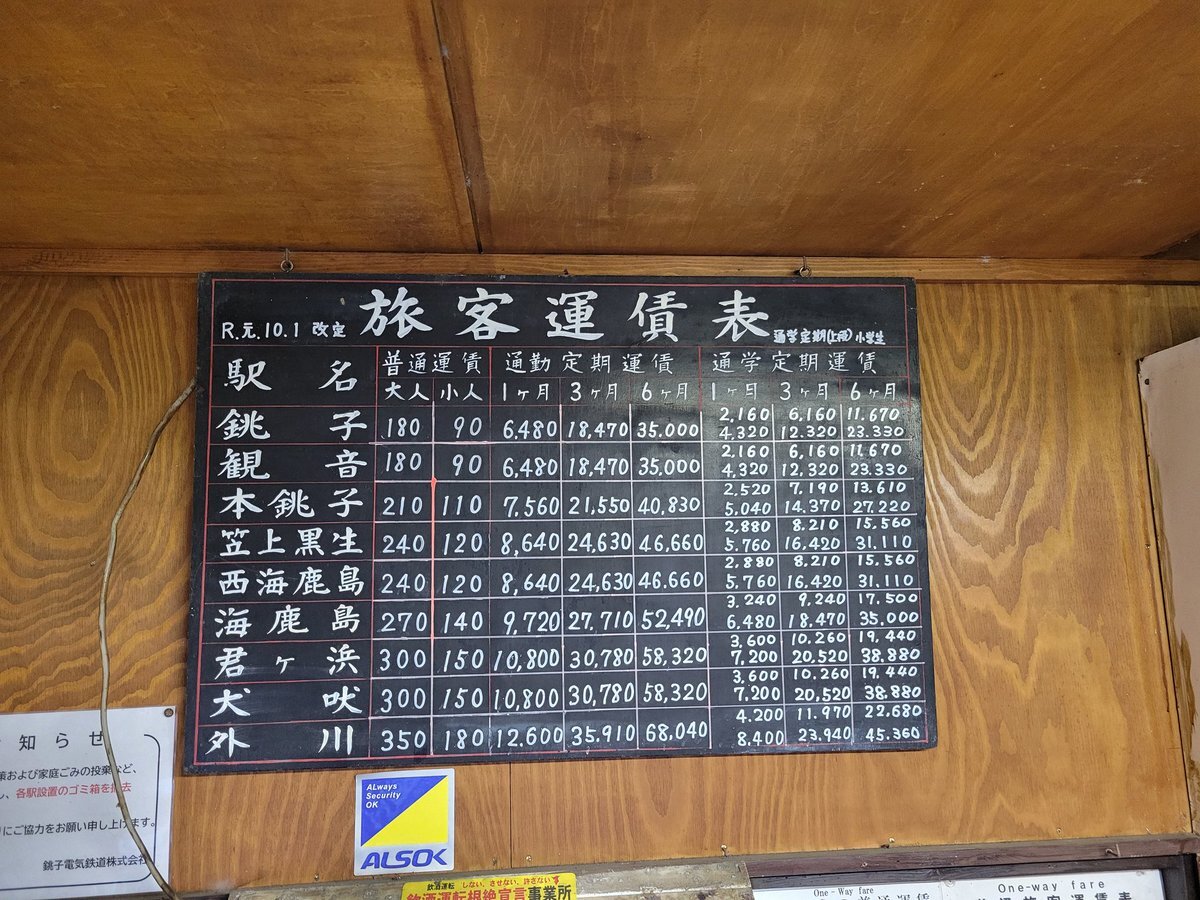 旅客運賃表
R.元.10.1 改定
通学定期(上段)小学生
駅名 普通運賃 通勤定期運賃 通学定期運賃
大人 小人 1ヶ月 3ヶ月 6ヶ月 1ヶ月 3ヶ月 6ヶ月
2,160 6,160 11.670
銚子 180 90 6,480 18,470 35,000 4,320 12.320 23.330
2,160 6,160 11,670
観音 180 90 6,480 18,470 35,000 4,320 12,320 23.330
2,520 7,190 13.610
本銚子 210 110 7,560 21,550 40,830 5,040 14.370 27,220
2,880 8.210 15.560
笠上黒生 240 120 8,640 24,630 46,660 5.760 16,420 31,110
2,880 8,210 15,560
西海鹿島 240 120 8,640 24,630 46.660 5,760 16.420 31,110
3,240 9,240 17,500
海鹿島 270 140 9,720 27,710 52,490 6,480 18.470 35,000
3,600 10.260 19,440
君ヶ浜 300 150 10,800 30,780 58,320 7,200 20,520 38,880
3,600 10,260 19.440
犬吠 300 150 10,800 30,780 58,320 7,200 20,520 38,880
4.200 11,970 22,680
外川 350 180 12,600 35.910 68,040 8.400 23.940 45.360
知らせ
および家庭ごみの投棄など、
各駅設置のゴミ箱を撤去
にご協力をお願い申し上げます。
銚子電気鉄道株式会社
ALways
Security
OK
ALSOK
飲酒運転 しない、させない、許さない
飲酒運転根絶宣言事業所
One-Way fare
One-way fare